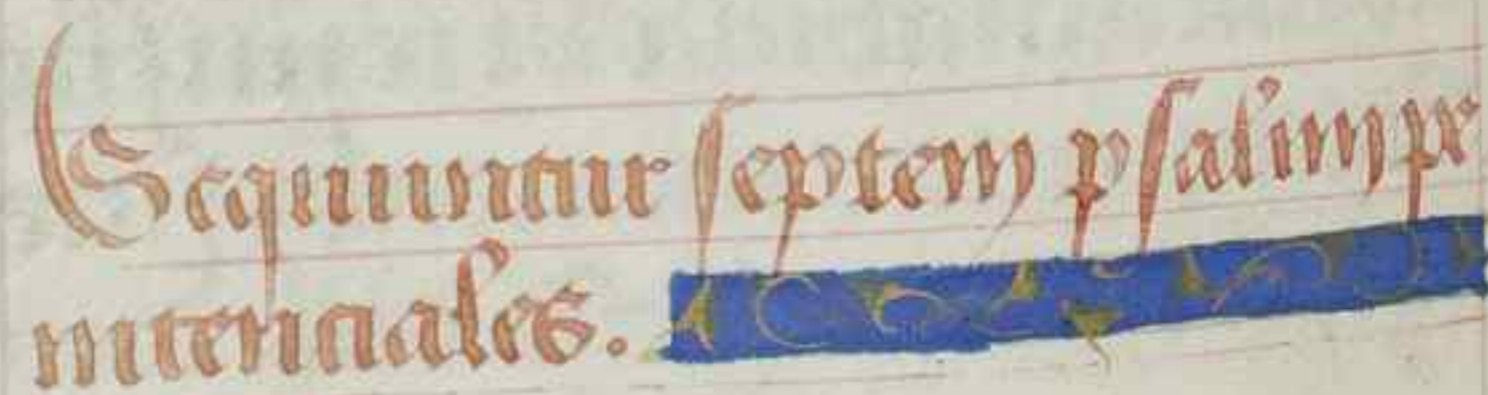 Sequuntur septem psalmi pe
nitenciales.